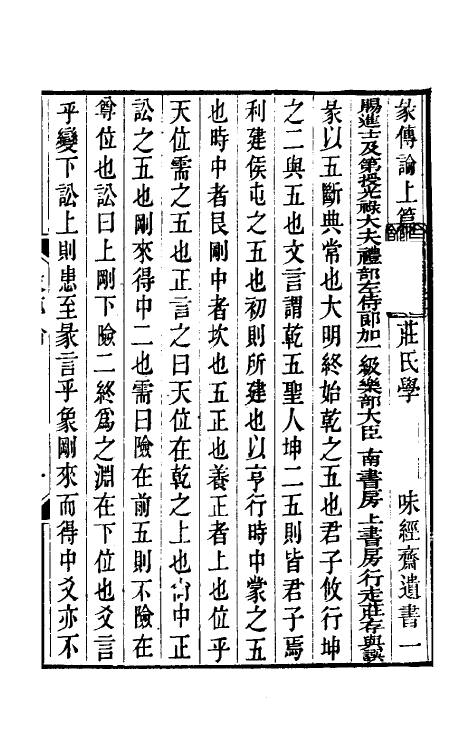 彖傳論上篇 莊氏學 味經齋遺書一
賜進士及第授光祿大夫禮部左侍郎加一級樂部大臣 南書房上書房行走莊存與譔
彖以五斷典常也大明終始乾之五也君子攸行坤
之二與五也文言謂乾五聖人坤二五則皆君子焉
利建侯屯之五也初則所建也以亨行時中蒙之五
也時中者艮剛中者坎也五正也養正者上也位乎
天位需之五也正言之曰天位在乾之上也尚中正
訟之五也剛來得中二也需曰險在前五則不險在
尊位也訟曰上剛下險二終爲之淵在下位也爻言
乎變下訟上則患至彖言乎象剛來而得中爻亦不